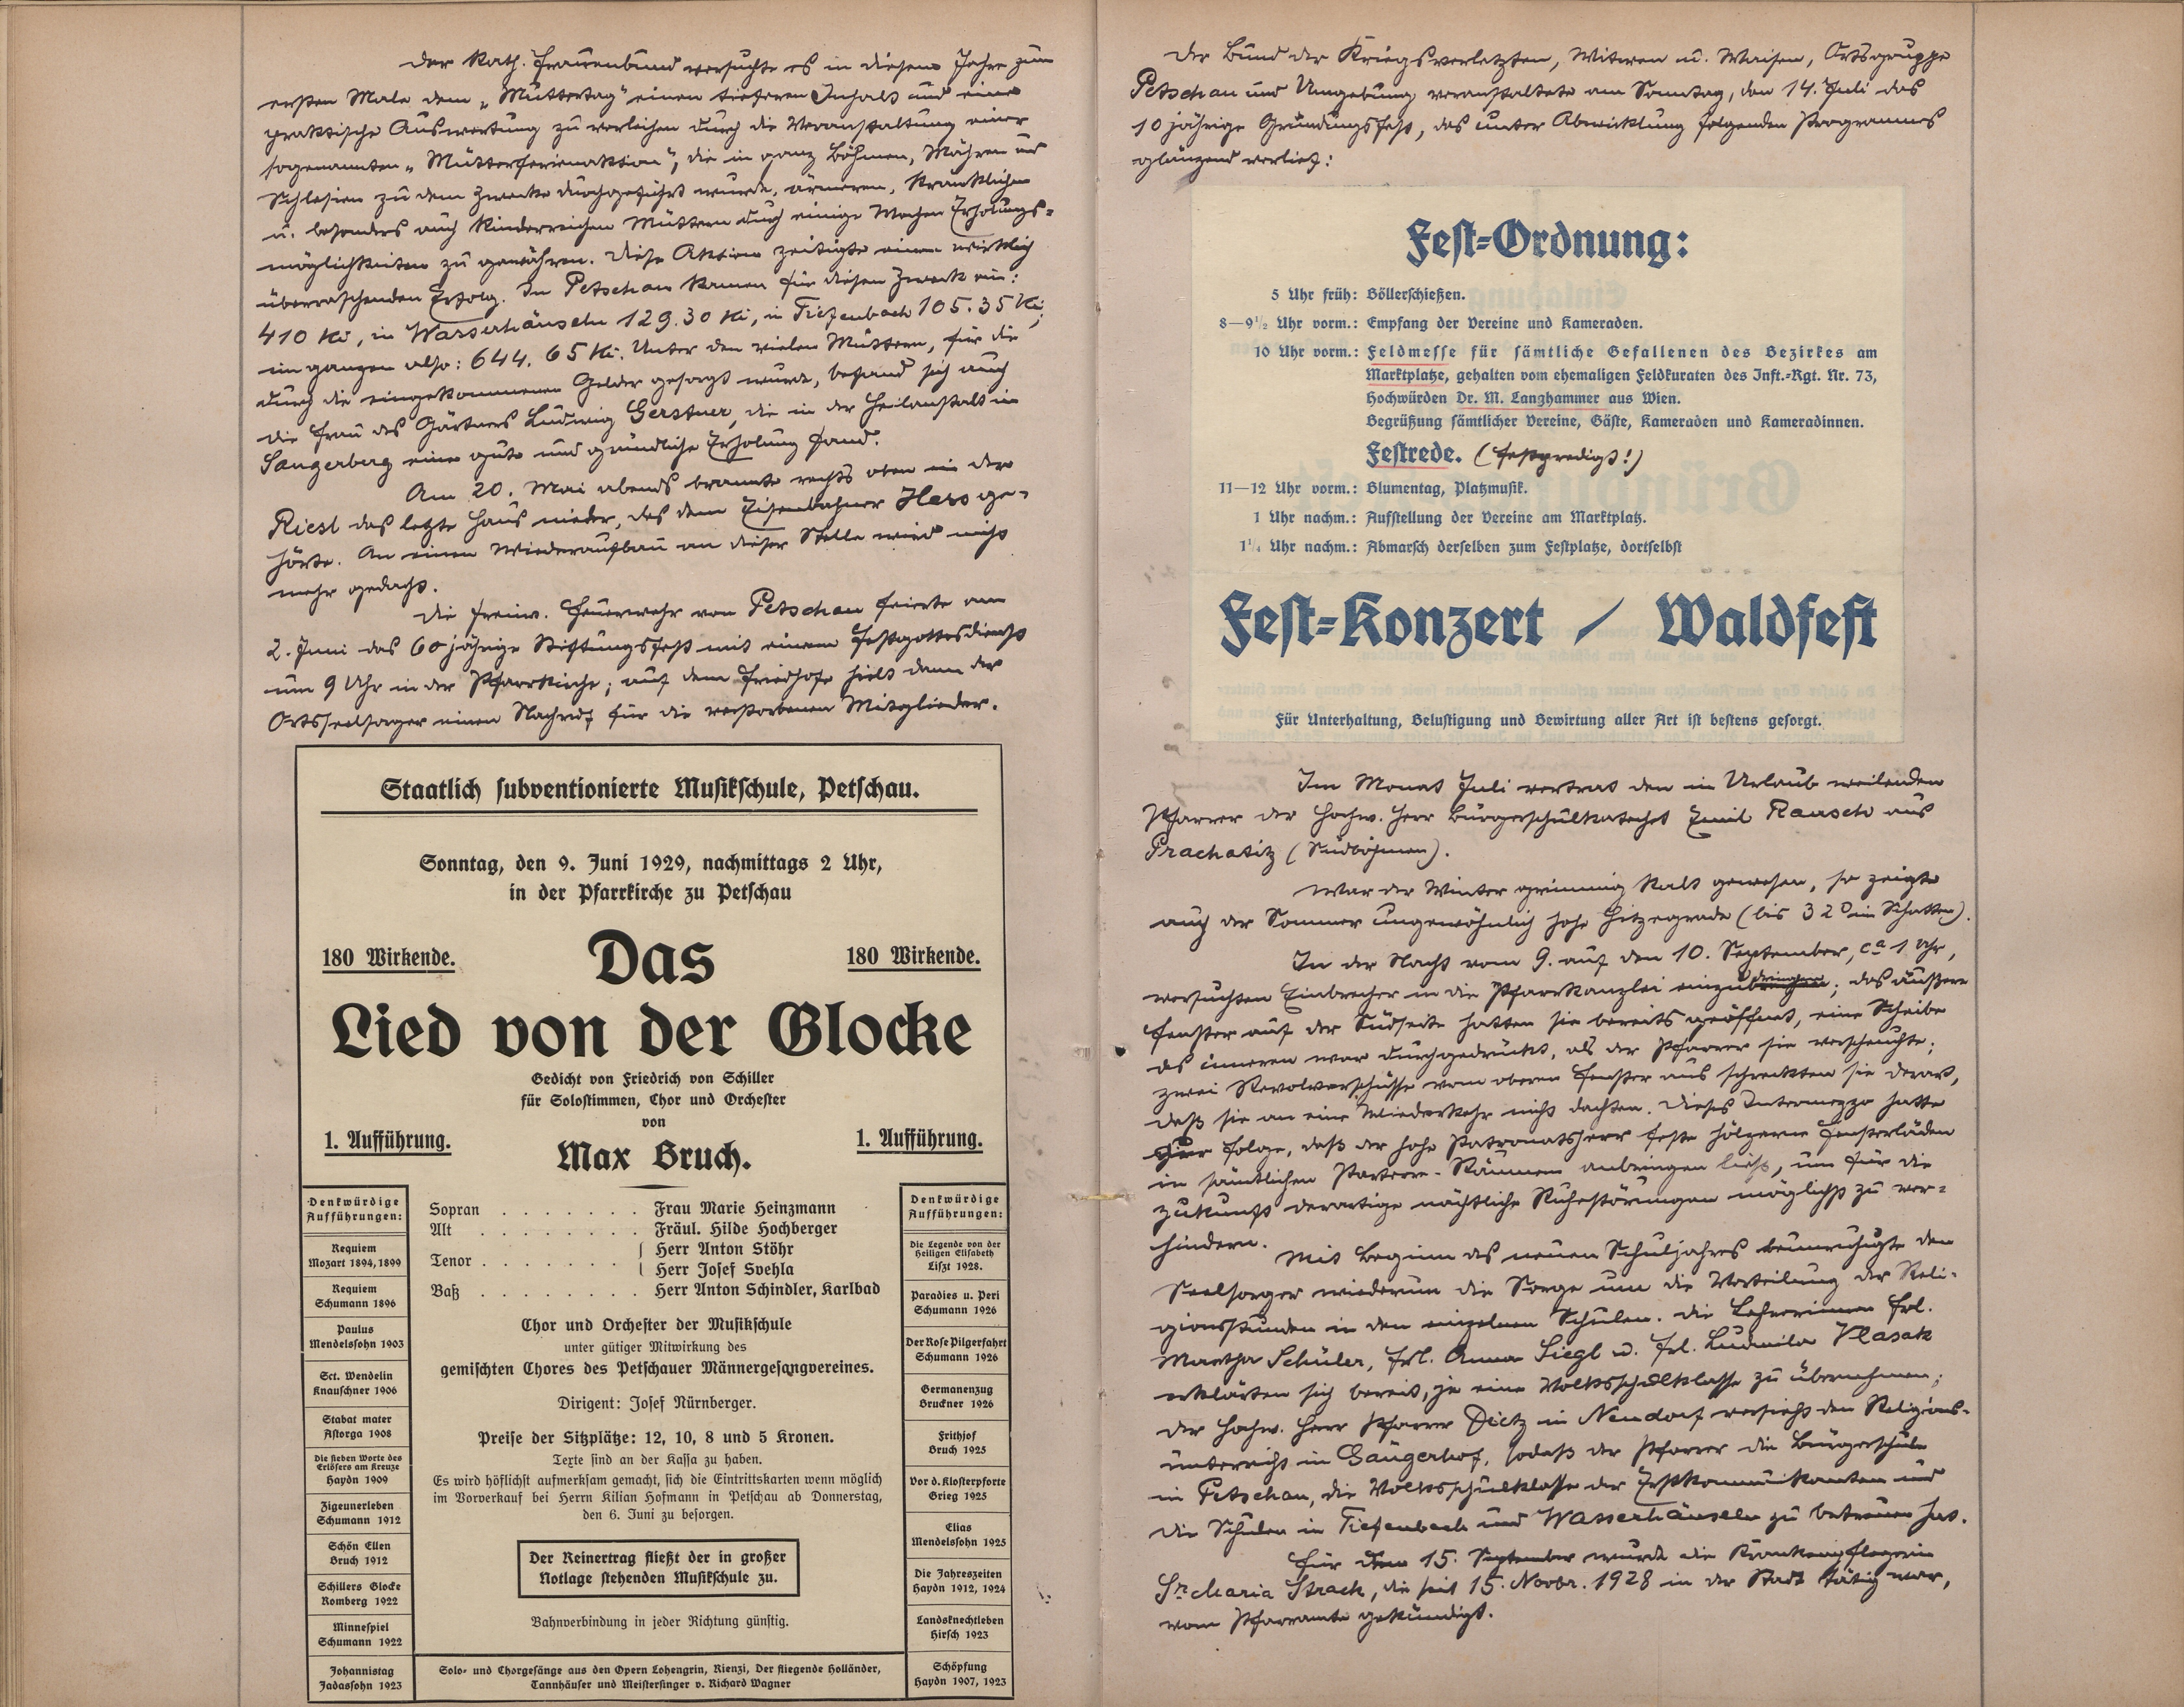 Der kath. Frauenbund versuchte es in diesem Jahre zum
ersten Male dem „Muttertag" einen tieferen Inhalt und eine
praktische Auswertung zu verleihen durch die Veranstaltung einer
sogenannten „Mütterferienaktion", die in ganz Böhmen, Mähren und
Schlesien zu dem Zwecke durchgeführt wurde, ärmeren, kränklichen
u. besonders auch kinderreichen Müttern durch einige Wochen Erholungs-
möglichkeiten zu gewähren. Diese Aktion zeitigte einen wirklich
überraschenden Erfolg. In Petschau kamen für diesen Zweck ein:
410 Kč, in Wasserhäuseln 129.30 Kč, in Tiefenbach 105.35 Kč,
im ganzen also: 644.65 Kč. Unter den vielen Müttern, für die
durch die eingekommenen Gelder gesorgt wurde, befand sich auch
die Frau des Gärtners Ludwig Gerstner, die in der Heilanstalt in
Sangerberg eine gute und gründliche Erholung fand.
Am 20. Mai abends brannte rechts oben in der
Riesl das letzte Haus nieder, das dem Eisenbahner Hess ge-
hörte. An einen Wiederaufbau an dieser Stelle wird nicht
mehr gedacht.
Die freiw. Feuerwehr von Petschau feierte am
2. Juni das 60 jährige Stiftungsfest mit einem Festgottesdienst
um 9 Uhr in der Pfarrkirche; auf dem Friedhofe hielt dann der
Ortsseelsorger einen Nachruf für die verstorbenen Mitglieder.
Staatlich subventionierte Musikschule, Petschau.
Sonntag, den 9. Juni 1929, nachmittags 2 Uhr,
in der Pfarrkirche zu Petschau
180 Wirkende. Das 180 Wirkende.
Lied von der Glocke
Gedicht von Friedrich von Schiller
für Solostimmen, Chor und Orchester
von
1. Aufführung. Max Bruch. 1. Aufführung.
Denkwürdige
Aufführungen:
Requiem
Mozart 1894, 1899
Requiem
Schumann 1896
Paulus
Mendelssohn 1903
Sct. Wendelin
Knauschner 1906
Stabat mater
Astorga 1908
Die sieben Worte des
Erlösers am Kreuze
Haydn 1909
Zigeunerleben
Schumann 1912
Schön Ellen
Bruch 1912
Schillers Glocke
Romberg 1922
Minnespiel
Schumann 1922
Johannistag
Jadassohn 1923
Sopran . . . . . . . Frau Marie Heinzmann
Alt . . . . . . . . Fräul. Hilde Hochberger
Tenor . . . . . . . { Herr Anton Stöhr
Herr Josef Svehla
Baß . . . . . . . . Herr Anton Schindler, Karlbad
Chor und Orchester der Musikschule
unter gütiger Mitwirkung des
gemischten Chores des Petschauer Männergesangvereines.
Dirigent: Josef Nürnberger.
Preise der Sitzplätze: 12, 10, 8 und 5 Kronen.
Texte sind an der Kassa zu haben.
Es wird höflichst aufmerksam gemacht, sich die Eintrittskarten wenn möglich
im Vorverkauf bei Herrn Kilian Hofmann in Petschau ab Donnerstag,
den 6. Juni zu besorgen.
Der Reinertrag fließt der in großer
Notlage stehenden Musikschule zu.
Bahnverbindung in jeder Richtung günstig.
Solo- und Chorgesänge aus den Opern Lohengrin, Rienzi, Der fliegende Holländer,
Tannhäuser und Meistersinger v. Richard Wagner
Denkwürdige
Aufführungen:
Die Legende von der
Heiligen Elisabeth
Liszt 1928.
Paradies u. Peri
Schumann 1926
Der Rose Pilgerfahrt
Schumann 1926
Germanenzug
Bruckner 1926
Frithjof
Bruch 1925
Vor d. Klosterpforte
Grieg 1925
Elias
Mendelssohn 1925
Die Jahreszeiten
Haydn 1912, 1924
Landsknechtleben
Hirsch 1923
Schöpfung
Haydn 1907, 1923
Der Bund der Kriegsverletzten, Witwen u. Waisen, Ortsgruppe
Petschau und Umgebung veranstaltete am Sonntag, den 14. Juli das
10 jährige Gründungsfest, das unter Abwicklung folgenden Programmes
glänzend verlief:
Fest-Ordnung:
5 Uhr früh: Böllerschießen.
8—9½ Uhr vorm.: Empfang der Vereine und Kameraden.
10 Uhr vorm.: Feldmesse für sämtliche Gefallenen des Bezirkes am
Marktplatze, gehalten vom ehemaligen Feldkuraten des Inft.-Rgt. Nr. 73,
Hochwürden Dr. M. Langhammer aus Wien.
Begrüßung sämtlicher Vereine, Gäste, Kameraden und Kameradinnen.
Festrede. (Festpredigt!)
11—12 Uhr vorm.: Blumentag, Platzmusik.
1 Uhr nachm.: Aufstellung der Vereine am Marktplatz.
1¼ Uhr nachm.: Abmarsch derselben zum Festplatze, dortselbst
Fest-Konzert / Waldfest
Für Unterhaltung, Belustigung und Bewirtung aller Art ist bestens gesorgt.
Im Monat Juli vertrat den in Urlaub weilenden
Pfarrer der hochw. Herr Bürgerschulkatechet Emil Rausch aus
Prachatitz (Südböhmen).
War der Winter grimmig kalt gewesen, so zeigte
auch der Sommer ungewöhnlich hohe Hitzegrade (bis 32° im Schatten).
In der Nacht vom 9. auf den 10. September, ca 1 Uhr,
versuchten Einbrecher in die Pfarrkanzlei einzudringen; das äußere
Fenster auf der Südseite hatten sie bereits geöffnet, eine Scheibe
des inneren war durchgedrückt, als der Pfarrer sie verscheuchte;
zwei Revolverschüsse vom oberen Fenster aus schreckten sie derart,
daß sie an eine Wiederkehr nicht dachten. Dieses Intermezzo hatte
zur Folge, daß der hohe Patronatsherr feste hölzerne Fensterläden
in sämtlichen Parterre-Räumen anbringen ließ, um für die
Zukunft derartige nächtliche Ruhestörungen möglichst zu ver-
hindern.
Mit Beginn des neuen Schuljahres beunruhigte den
Seelsorger wiederum die Sorge um die Verteilung der Reli-
gionsstunden in den einzelnen Schulen. Die Lehrerinnen Frl.
Martha Schüler, Frl. Anna Siegl u. Frl. Ludmila Vlasak
erklärten sich bereit, je eine Volksschulklasse zu übernehmen;
der hochw. Herr Pfarrer Dietz in Neudorf versieht den Religions-
unterricht in Gängerhof, sodaß der Pfarrer die Bürgerschule
in Petschau, die Volksschulklasse der Erstkommunikanten und
die Schulen in Tiefenbach und Wasserhäuseln zu betreuen hat.
Für den 15. September wurde die Krankenpflegerin
Sr. Maria Strach, die seit 15. Novbr. 1928 in der Stadt tätig war,
vom Pfarramte gekündigt.